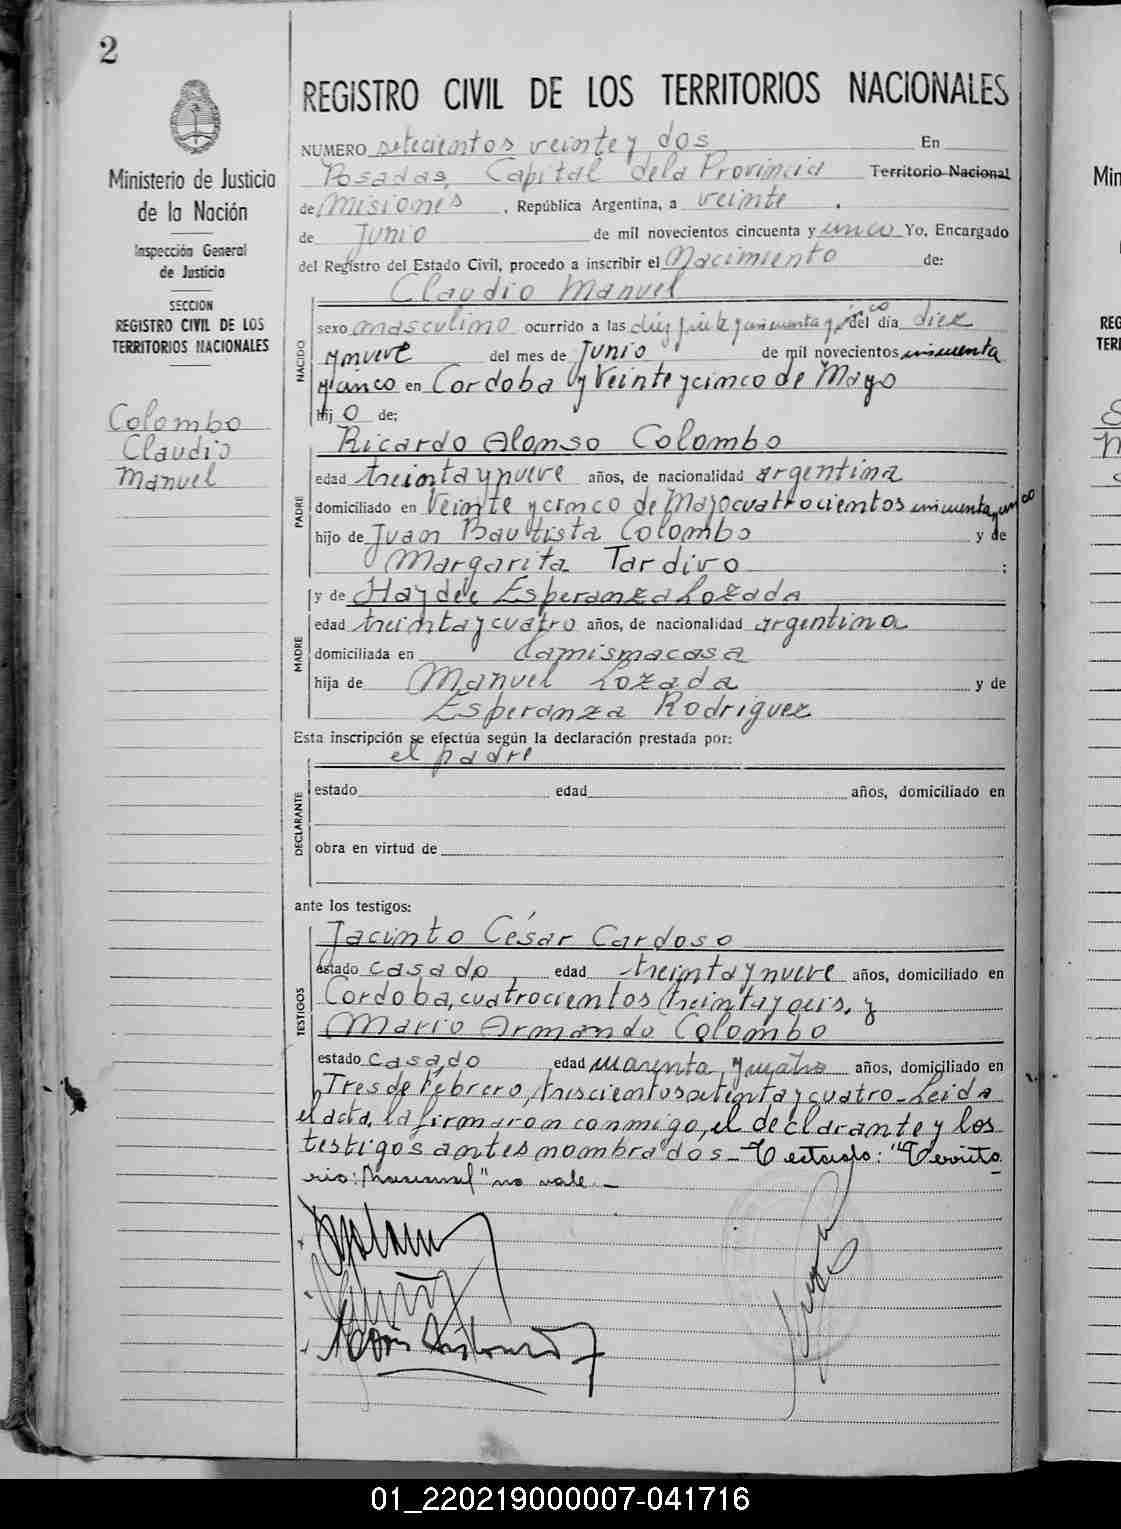 2
Ministerio de Justicia
de la Nación
Inspección General
de Justicia
SECCION
REGISTRO CIVIL DE LOS
TERRITORIOS NACIONALES
Colombo
Claudio
Manuel
REGISTRO CIVIL DE LOS TERRITORIOS NACIONALES
NUMERO setecientos veinte y dos En
Posadas, Capital de la Provincia Territorio Nacional
de Misiones, República Argentina, a veinte
de Junio de mil novecientos cincuenta y cinco Yo, Encargado
del Registro del Estado Civil, procedo a inscribir el Nacimiento de:
Claudio Manuel
NACIDO
sexo masculino ocurrido a las diez y siete y cincuenta y cinco del día diez
y nueve del mes de Junio de mil novecientos cincuenta
y cinco en Cordoba y Veinte y cinco de Mayo
hij o de;
PADRE
Ricardo Alonso Colombo
edad treinta y nueve años, de nacionalidad argentina
domiciliado en Veinte y cinco de Mayo cuatrocientos cincuenta y cinco
hijo de Juan Bautista Colombo y de
Margarita Tardivo ;
MADRE
y de Haydée Esperanza Lozada
edad treinta y cuatro años, de nacionalidad argentina
domiciliada en la misma casa
hija de Manuel Lozada y de
Esperanza Rodriguez
Esta inscripción se efectúa según la declaración prestada por:
el padre
DECLARANTE
estado edad años, domiciliado en
obra en virtud de
ante los testigos:
TESTIGOS
Jacinto César Cardoso
estado casado edad treinta y nueve años, domiciliado en
Cordoba, cuatrocientos treinta y seis, y
Mario Armando Colombo
estado casado edad cuarenta y cuatro años, domiciliado en
Tres de Febrero, trescientos setenta y cuatro - Leida
el acta, la firmaron conmigo, el declarante y los
testigos antes nombrados - Testado: "Territo
rio: Nacional" no vale. -
Min
REG
TERI
01_220219000007-041716